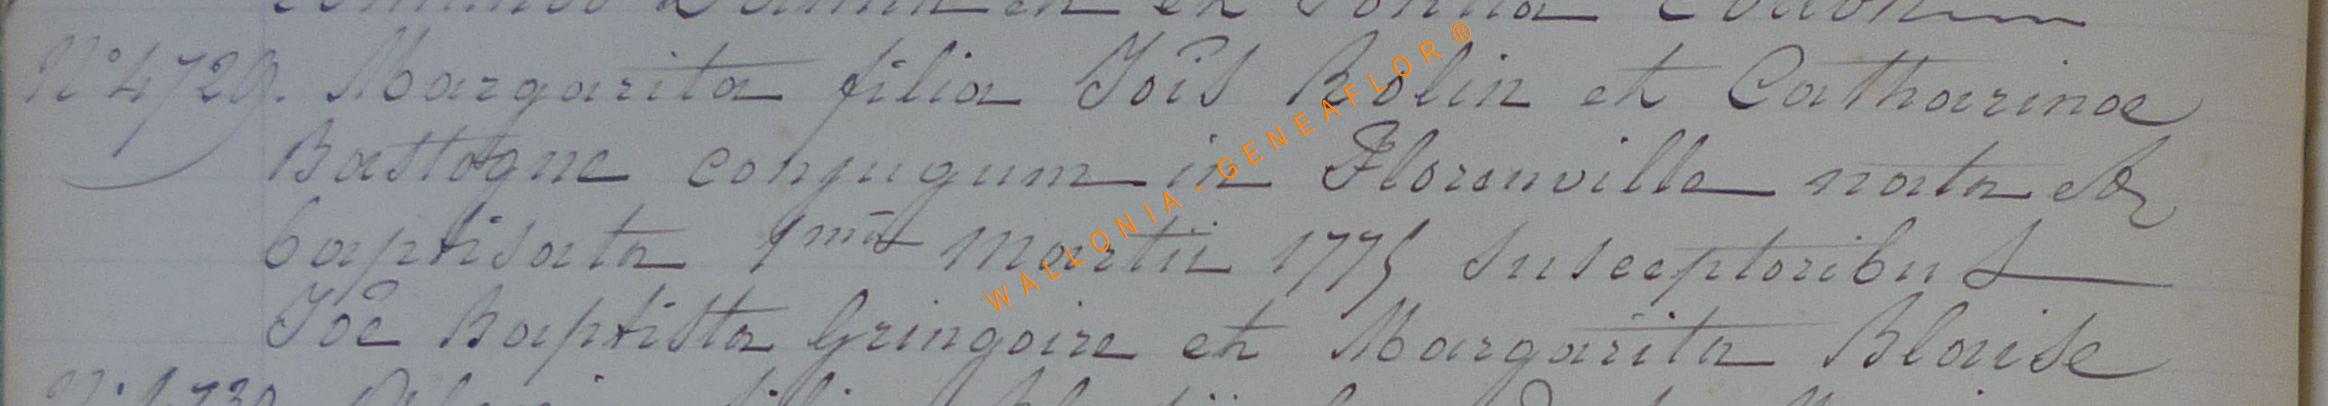 N° 4729. Margarita filia Joîs Rolin et Catharinae
Bastogne conjugum in Florenville nata et
baptisata 1mâ Martii 1775 susceptoribus
Joê Baptista Gringoire et Margarita Blaise
WALLONIA-GENEAFLOR®